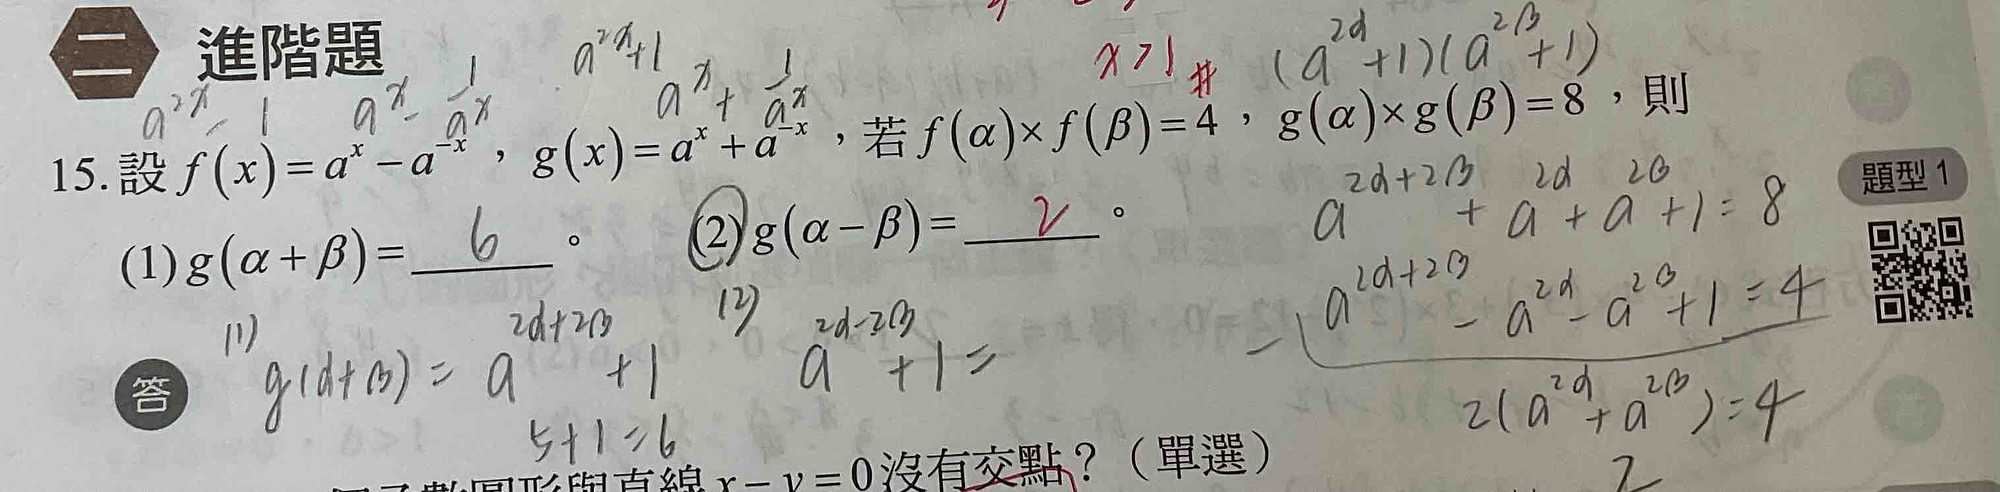 二 進階題
a^{2x}+1
x>1 #
(a^{2α}+1)(a^{2β}+1)
a^{2x}-1 a^x-\frac{1}{a^x} a^x+\frac{1}{a^x}
15. 設 f(x)=a^x-a^{-x}，g(x)=a^x+a^{-x}，若 f(α)×f(β)=4，g(α)×g(β)=8，則
題型 1
(1) g(α+β)= 6 。 (2) g(α-β)= 2 。
a^{2α+2β}+a^{2α}+a^{2β}+1=8
-) a^{2α+2β}-a^{2α}-a^{2β}+1=4
2(a^{2α}+a^{2β})=4
2
答
(1) g(α+β)=a^{2α+2β}+1
5+1=6
(2) a^{2α-2β}+1=
數圖形與直線 x-y=0 沒有交點？（單選）